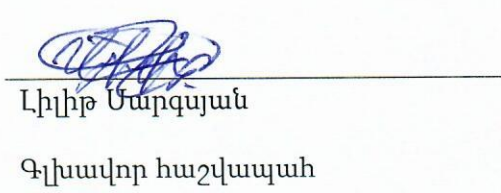 Լիլիթ Սարգսյան
Գլխավոր հաշվապահ